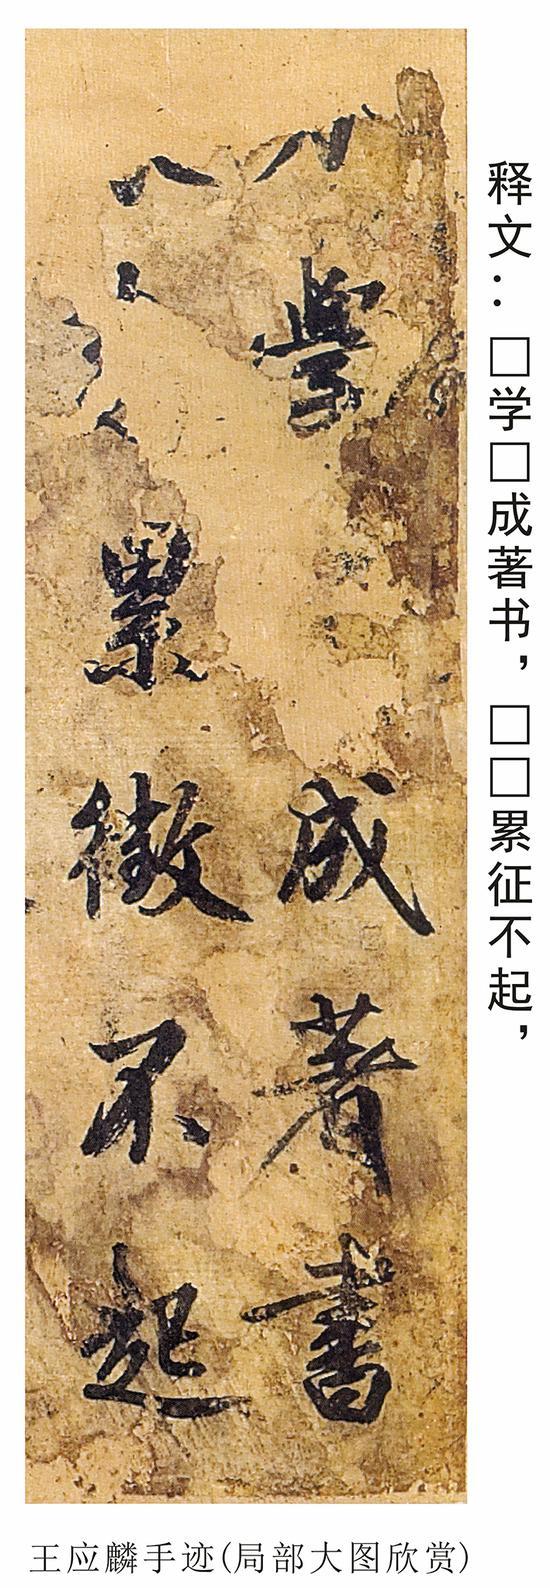 學成著書
累徵不起
释文：□学□成著书，□□累征不起，
王应麟手迹(局部大图欣赏)